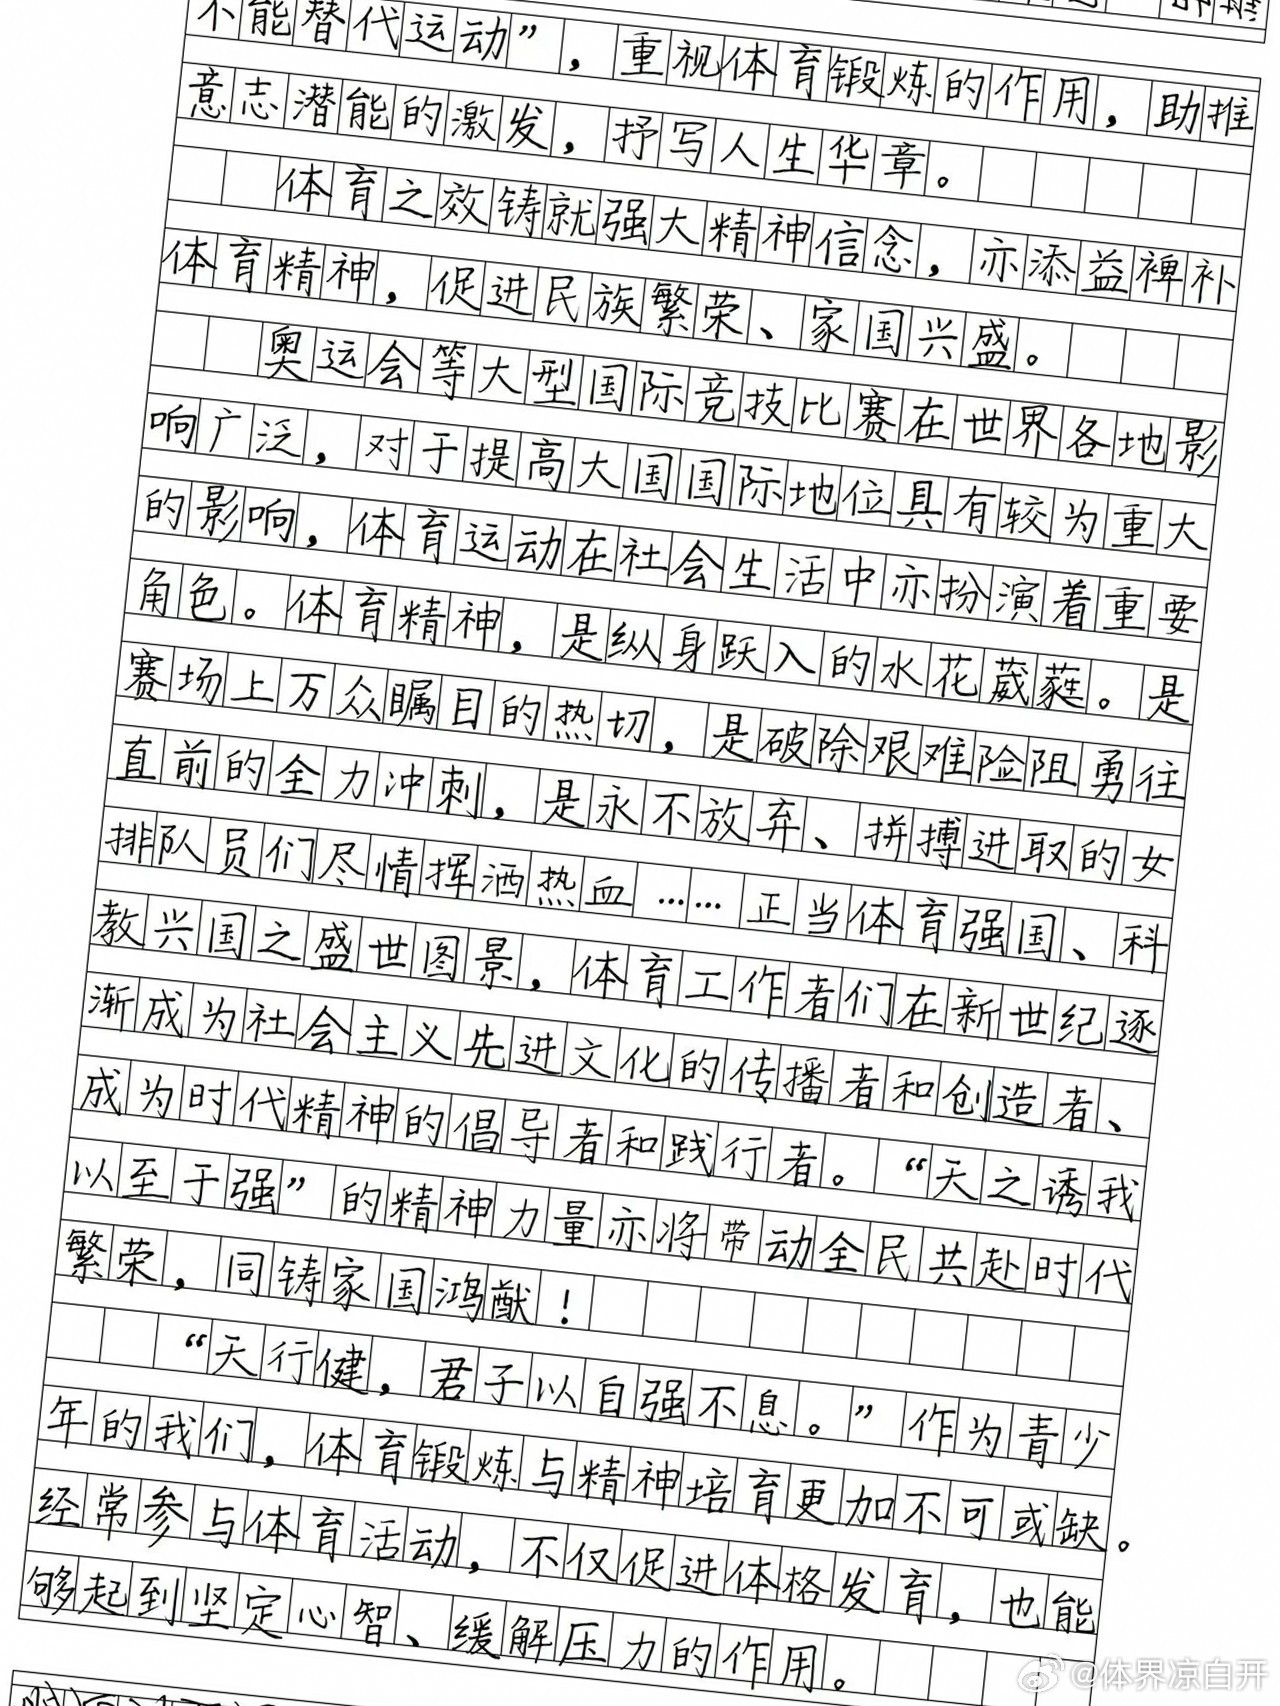 不能替代运动”，重视体育锻炼的作用，助推
意志潜能的激发，抒写人生华章。
体育之效铸就强大精神信念，亦添益裨补
体育精神，促进民族繁荣、家国兴盛。
奥运会等大型国际竞技比赛在世界各地影
响广泛，对于提高大国国际地位具有较为重大
的影响，体育运动在社会生活中亦扮演着重要
角色。体育精神，是纵身跃入的水花葳蕤。是
赛场上万众瞩目的热切，是破除艰难险阻勇往
直前的全力冲刺，是永不放弃、拼搏进取的女
排队员们尽情挥洒热血……正当体育强国、科
教兴国之盛世图景，体育工作者们在新世纪逐
渐成为社会主义先进文化的传播者和创造者、
成为时代精神的倡导者和践行者。“天之诱我
以至于强”的精神力量亦将带动全民共赴时代
繁荣，同铸家国鸿猷！
“天行健，君子以自强不息。”作为青少
年的我们，体育锻炼与精神培育更加不可或缺。
经常参与体育活动，不仅促进体格发育，也能
够起到坚定心智、缓解压力的作用。
@体界凉白开